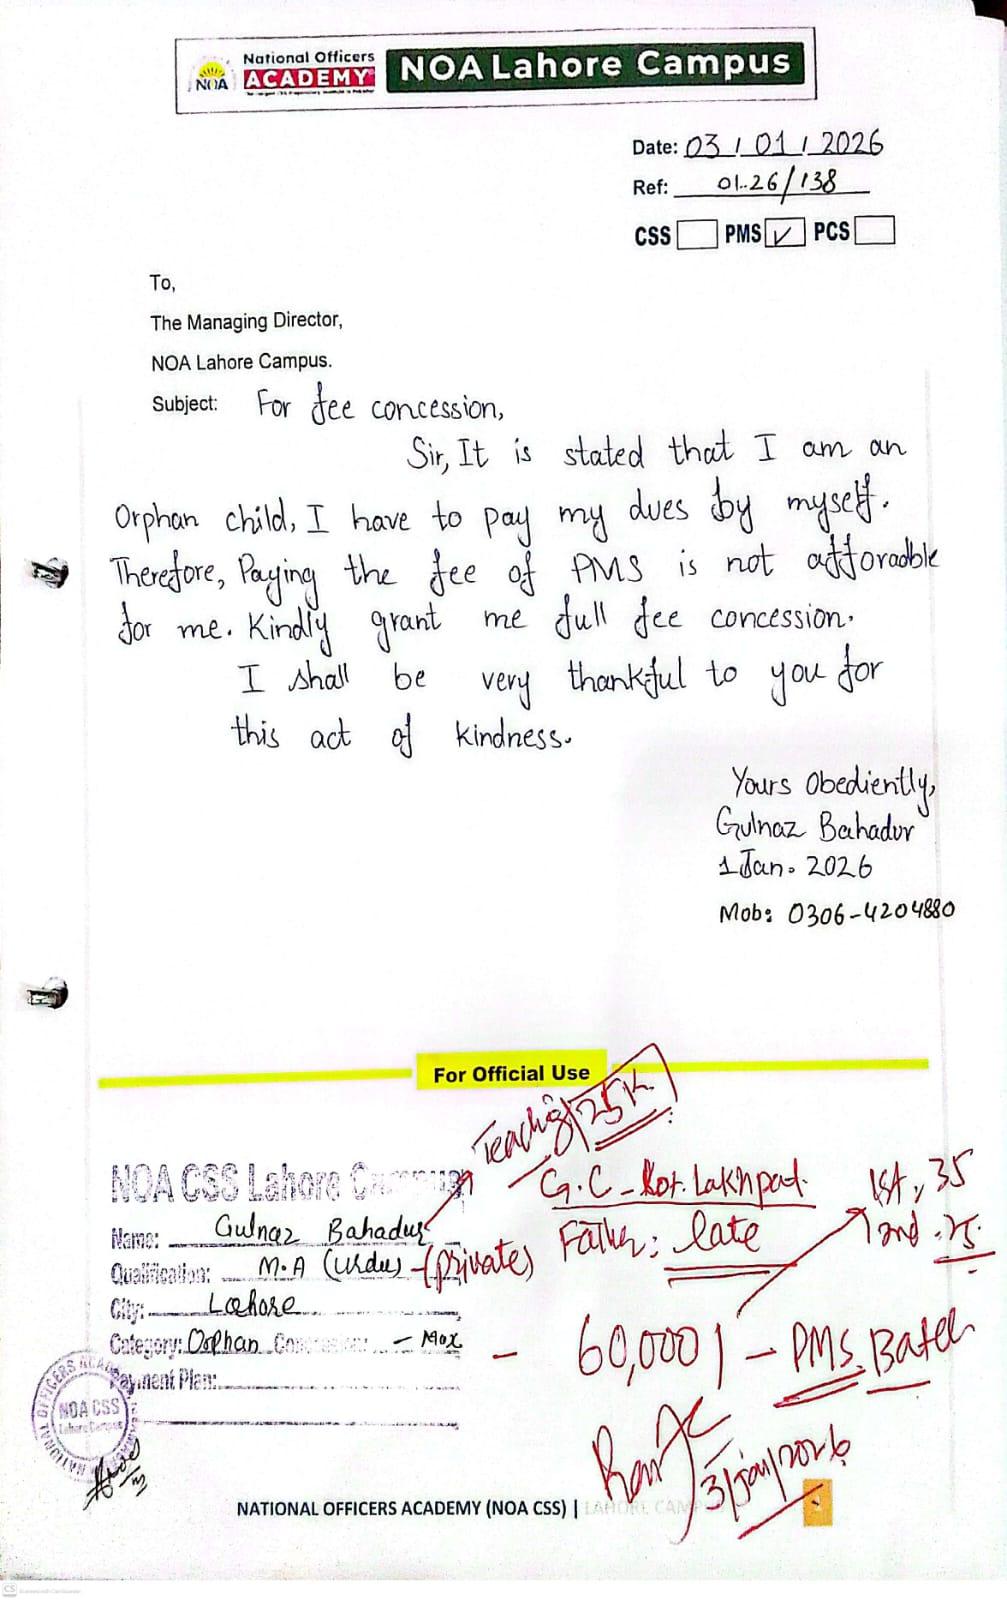 National Officers
ACADEMY
NOA
NOA Lahore Campus
Date: 03/01/2026
Ref: 01-26/138
CSS PMS ✓ PCS
To,
The Managing Director,
NOA Lahore Campus.
Subject: For fee concession,
Sir, It is stated that I am an
Orphan child, I have to pay my dues by myself.
Therefore, Paying the fee of PMS is not afforadble
for me. Kindly grant me full fee concession.
I shall be very thankful to you for
this act of kindness.
Yours Obediently,
Gulnaz Bahadur
1 Jan. 2026
Mob: 0306-4204880
For Official Use
Teaching 25K
NOA CSS Lahore Campus
G.C - Kot. Lakhpat.
1st, 35
2nd. 25
Name: Gulnaz Bahadur
Father: late
Qualification: M.A (Urdu) - (private)
City: Lahore
Category: Orphan Concession: - Max - 60,000/- PMS Batch
Payment Plan:
NATIONAL OFFICERS ACADEMY
NOA CSS
Lahore Campus
3/Jan/2026
NATIONAL OFFICERS ACADEMY (NOA CSS) | LAHORE CAMPUS
CS